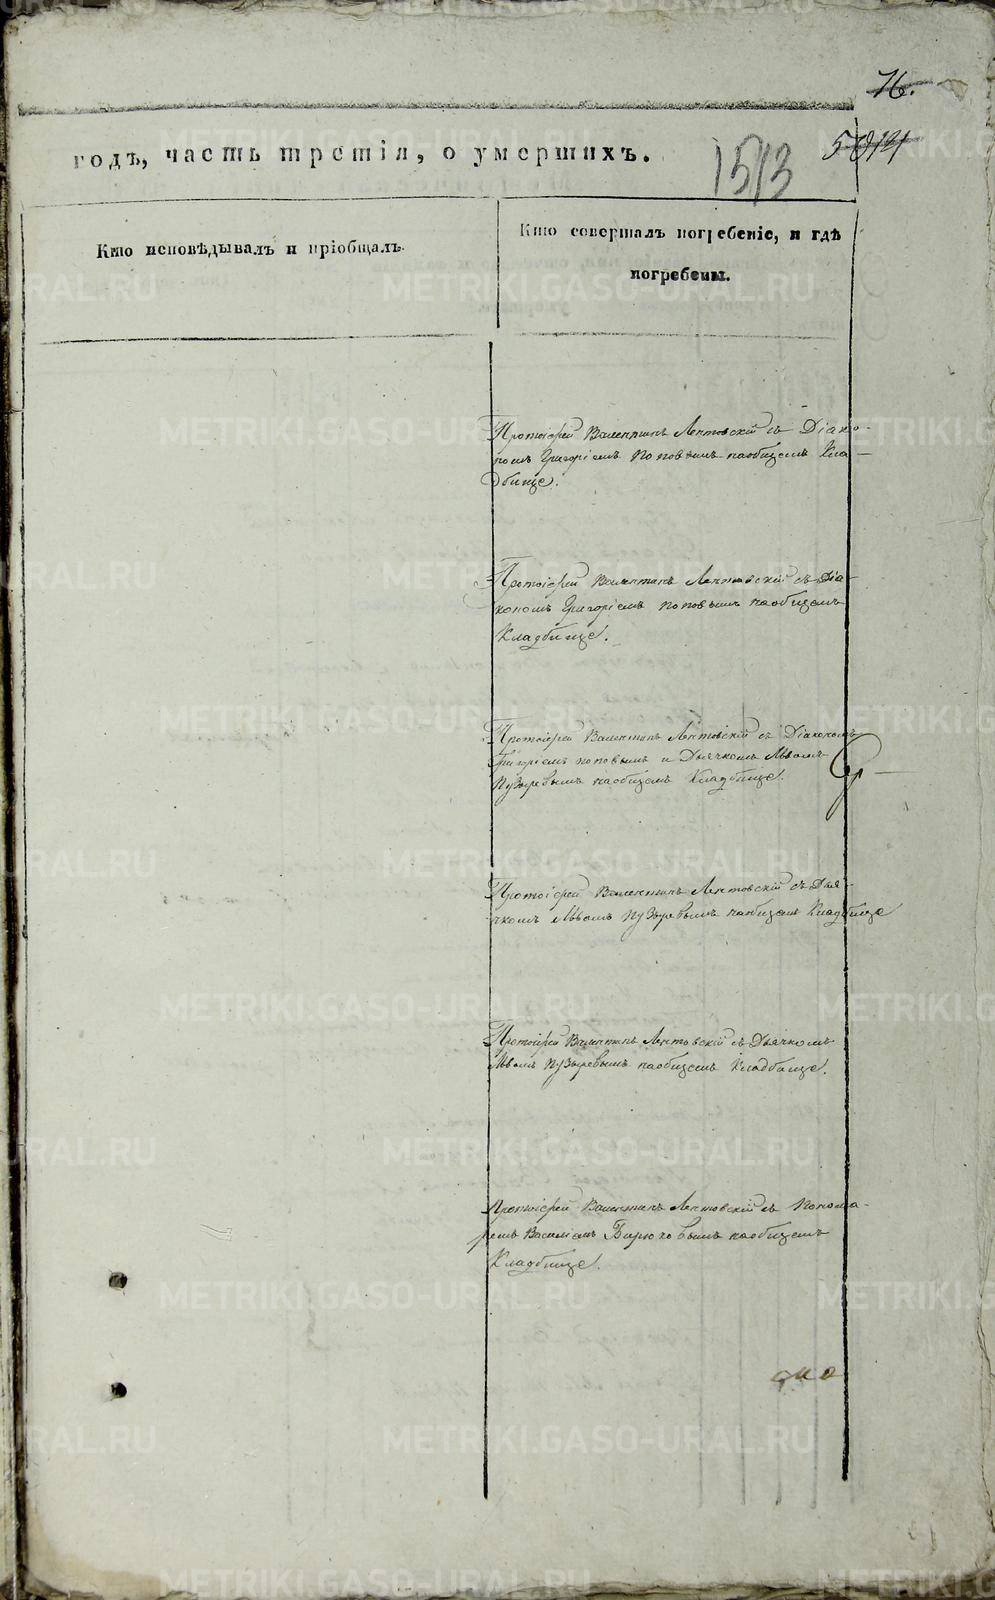 76.
годъ, часть третія, о умершихъ.
1513
Кто исповѣдывалъ и пріобщалъ.
Кто совершалъ погребеніе, и гдѣ
погребены.
Протоіерей Валентинъ Лептовскій съ Діако-
номъ Григоріемъ Поповымъ на общемъ Кла-
дбище.
Протоіерей Валентинъ Лептовскій съ Діа-
кономъ Григоріемъ Поповымъ на общемъ
Кладбище.
Протоіерей Валентинъ Лептовскій съ Діакономъ
Григоріемъ Поповымъ и Дьячкомъ Львомъ
Пузыревымъ на общемъ Кладбище.
Протоіерей Валентинъ Лептовскій съ Дья-
чкомъ Львомъ Пузыревымъ на общемъ Кладбище
Протоіерей Валентинъ Лептовскій съ Дьячкомъ
Львомъ Пузыревымъ на общемъ Кладбище.
Протоіерей Валентинъ Лептовскій съ Понома-
ремъ Василіемъ Бирюковымъ на общемъ
Кладбище.
METRIKI.GASO-URAL.RU